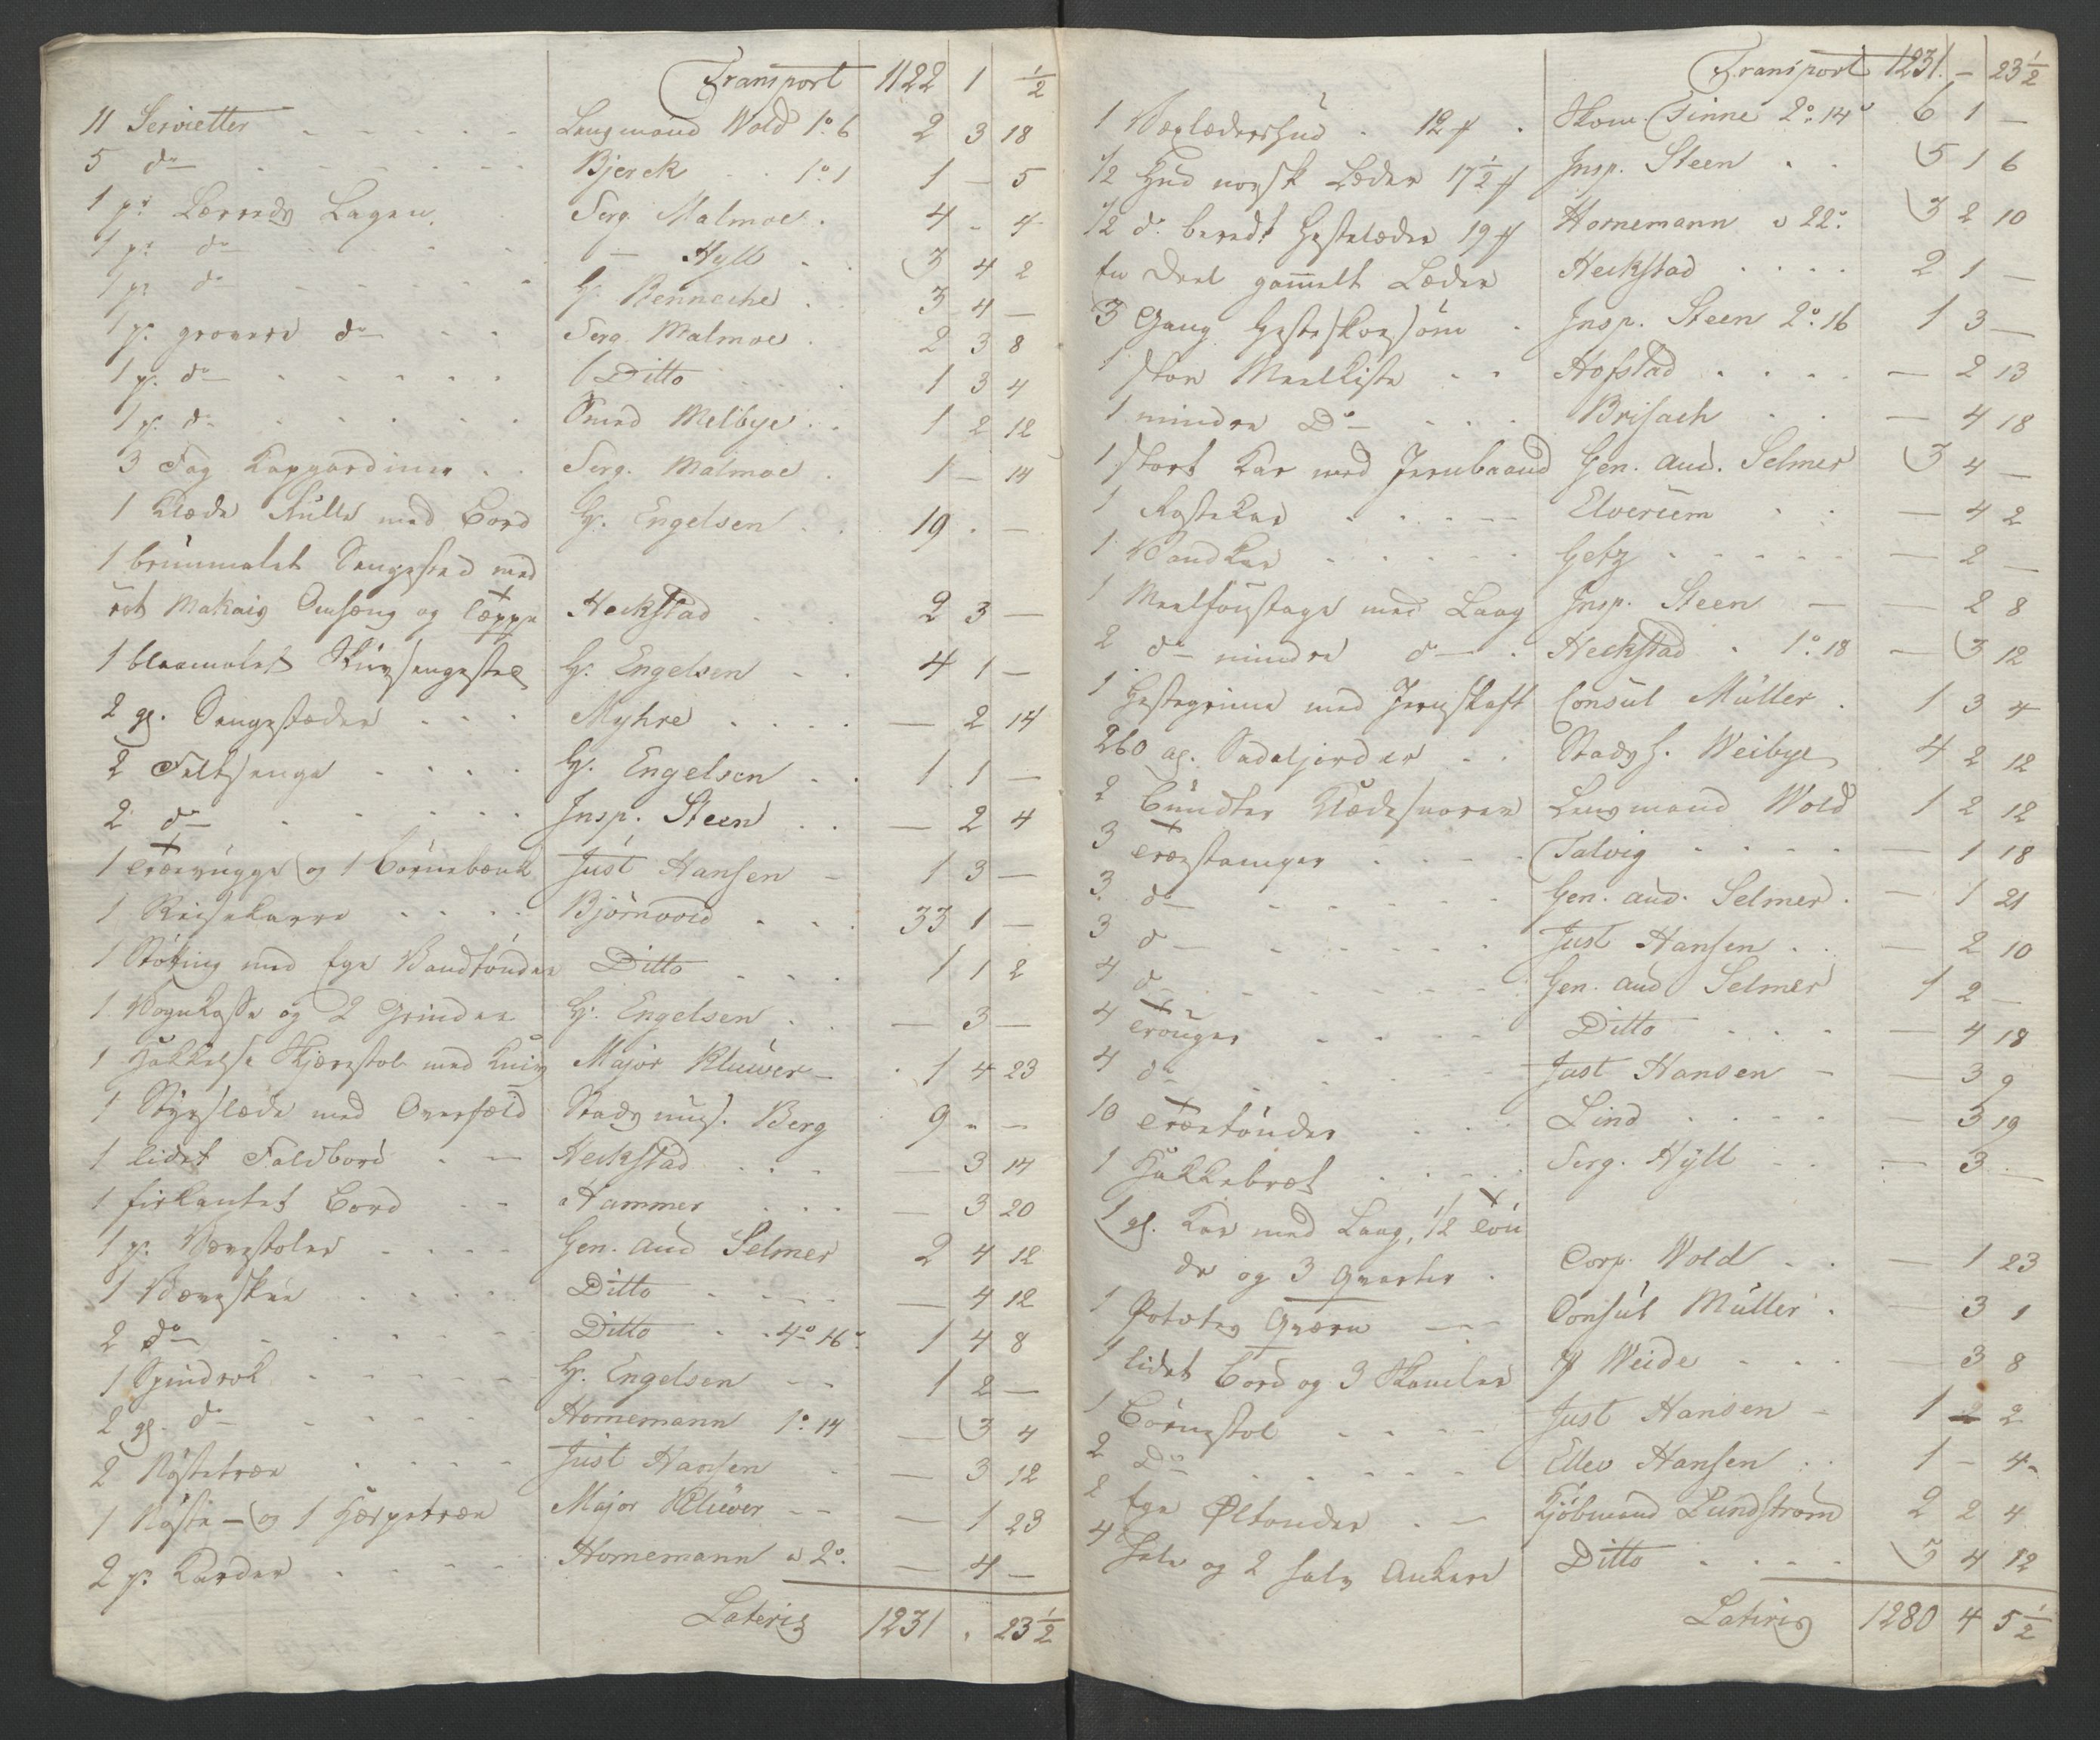 Transport 1122 1 ½
11 Servietter Laugmand Wold 1o 6 2 3 18
5 do Bjerck 1o 1 1 – 5
1 pr Lærreds Lagen Serg Malmoe 4 - 4
1 pr do – Hyll 3 4 2
1 pr do Hr. Benneche 3 4 –
1 pr grovere do Serg. Malmoe 2 3 8
1 pr do Ditto 1 3 4
1 pr do Smed Melbye 1 2 12
3 Fag Kapgardiner Serg. Malmoe 1 – 14
1 Klæde Rulle med Bord Hr. Engelsen 19 . –
1 brunmalet Sengested med
rødt Omhæng og Teppe Heckstad 2 3 –
1 blaamalet Skuvsengested Hr. Engelsen 4 1 –
2 gl. Sengestæder Myhre – 2 14
2 Feltsenge Hr. Engelsen 1 1 –
2 do Insp. Steen – 2 4
1 Trævugge og 1 Børnebænk Just Hansen 1 3 –
1 Reisekarre Björnvold 33 1 –
1 Støtting med Ege Vandtønder Ditto 1 1 2
1 Vognkasse og 2 Grinder Hr. Engelsen – 3 –
1 Hakkelse Skjærestol med Kniv Major Klüwer 1 4 23
1 Spidsslæde med Overfæld Stadsmus. Berg 9 - –
1 lidet Foldbord Heckstad – 3 14
1 firkantet Bord Hammer – 3 20
1 pr Vævstoler Gen. aud Selmer 2 4 12
1 Vævskee Ditto – 4 12
2 do Ditto 4o 16 1 4 8
1 Spindrok Hr. Engelsen 1 2 –
2 gl. do Hornemann 1o 14 – 3 4
2 Røstetræe Just Hansen – 3 12
1 Røste– og 1 Hærpetræe Major Klüwer – 1 23
2 pr Karder Hornemann 2o – 4 –
Lateris 1231 . 23½
Transport 1231. – 23½
1 12 Skom. Tinne 2o 14 6 1 –
½ Hud norsk Læder 17½ Insp. Steen 5 1 6
½ do beredt Hestelæder 19 Hornemann 22 3 2 10
En Deel gammelt Læder Heckstad 2 1 –
3 Gang Hesteskoesøm Insp. Steen 2o 16 1 3 –
1 stor Meelkiste Hofstad – 2 13
1 mindre Do Brisach – 4 18
1 stort Kar med Jernbaand Gen. aud. Selmer 3 4 –
1 Rostekar Elverum – 4 2
1 Vandkar Getz – 2 –
1 Meelfoustage med Laag Insp. Steen – 2 8
2 do mindre do Heckstad 1o 18 – 3 12
1 Hestegrime med Jernskaft Consul Müller 1 3 4
260 Stadsh. Weibye 4 2 12
2 Bundter Klædesnorer Laugmand Wold 1 2 12
3 Træestamper Talvig – 1 18
3 do Gen. aud. Selmer – 1 21
3 do Just Hansen – 2 10
4 do Gen. aud Selmer 1 2 –
4 Trouger Ditto – 4 18
4 do Just Hansen – 3 9
10 Træetønder Lind – 3 19
1 Hakkebræt Serg. Hyll – 3 .
1 gl. Kar med Laag, ½ Tøn
de og 3 Qvarter Corp. Wold – 1 23
1 Potetes Qværn Consul Müller – 3 1
1 lidet Bord og 3 Skamler Weide – 3 8
1 Børnestol Just Hansen 1 2 2
2 Do Ellev Hansen 1 – 4
2 Ege Øltønder Kjøbmand Lundström 2 2 4
4 hele og 2 halve Ankere Ditto 3 4 12
Lateris 1280 4 5½